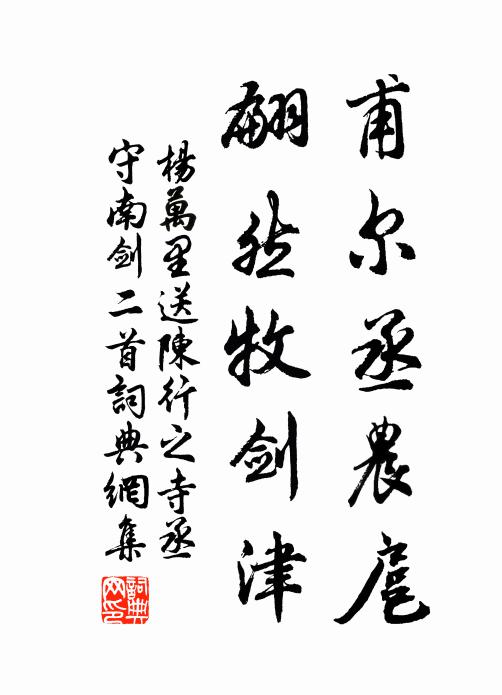 甫尔丞農扈
翩然牧剑津
楊萬里送陳行之寺丞
守南剑二首詞典網集
詞典
网印